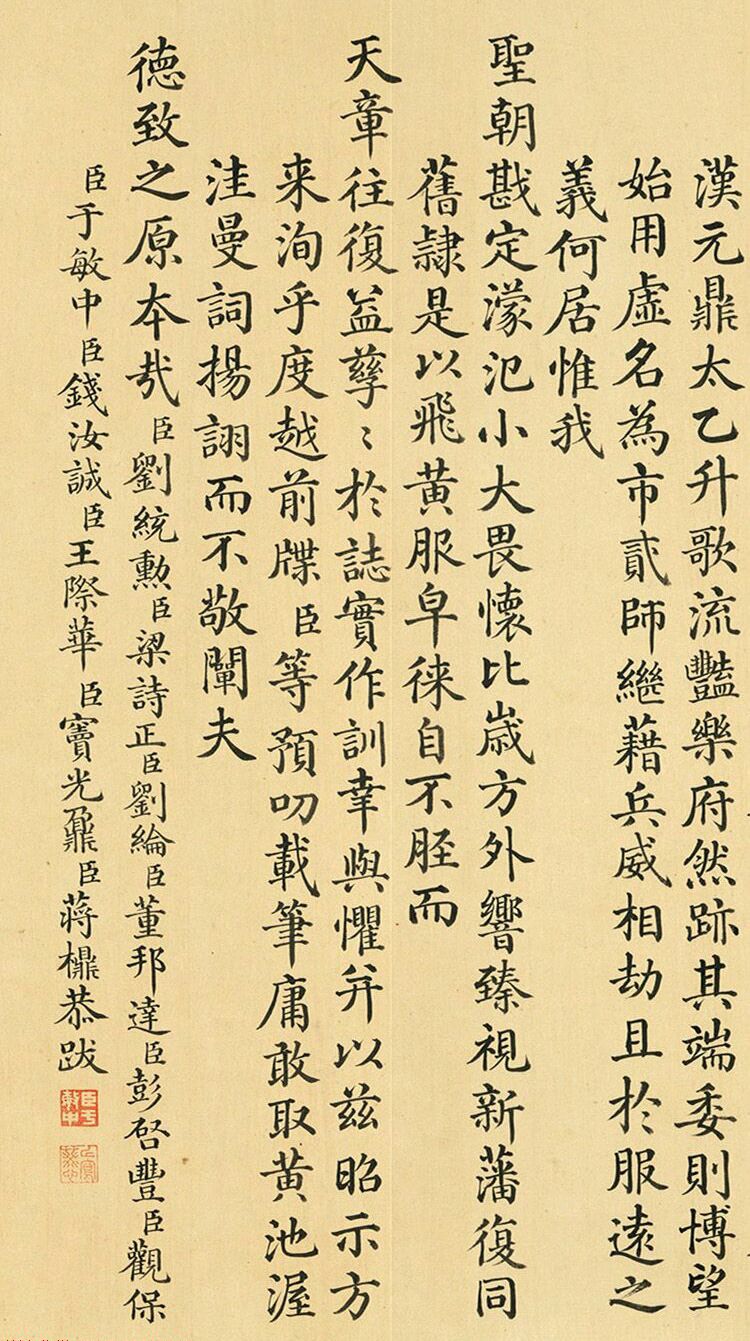 漢元鼎太乙升歌流豔樂府然跡其端委則博望
始用虛名為市貳師繼藉兵威相劫且於服遠之
義何居惟我
聖朝戡定濛汜小大畏懷比歲方外響臻視新藩復同
舊隷是以飛黄服皁徠自不脛而
天章往復益孳〻於誌實作訓幸與懼并以兹昭示方
来洵乎度越前牒臣等預叨載筆庸敢取黄池渥
洼曼詞揚詡而不敬闡夫
德致之原本㢤臣劉統勳臣梁詩正臣劉綸臣董邦達臣彭啓豐臣觀保
臣于敏中臣錢汝誠臣王際華臣竇光鼐臣蔣檙恭跋
臣于敏中